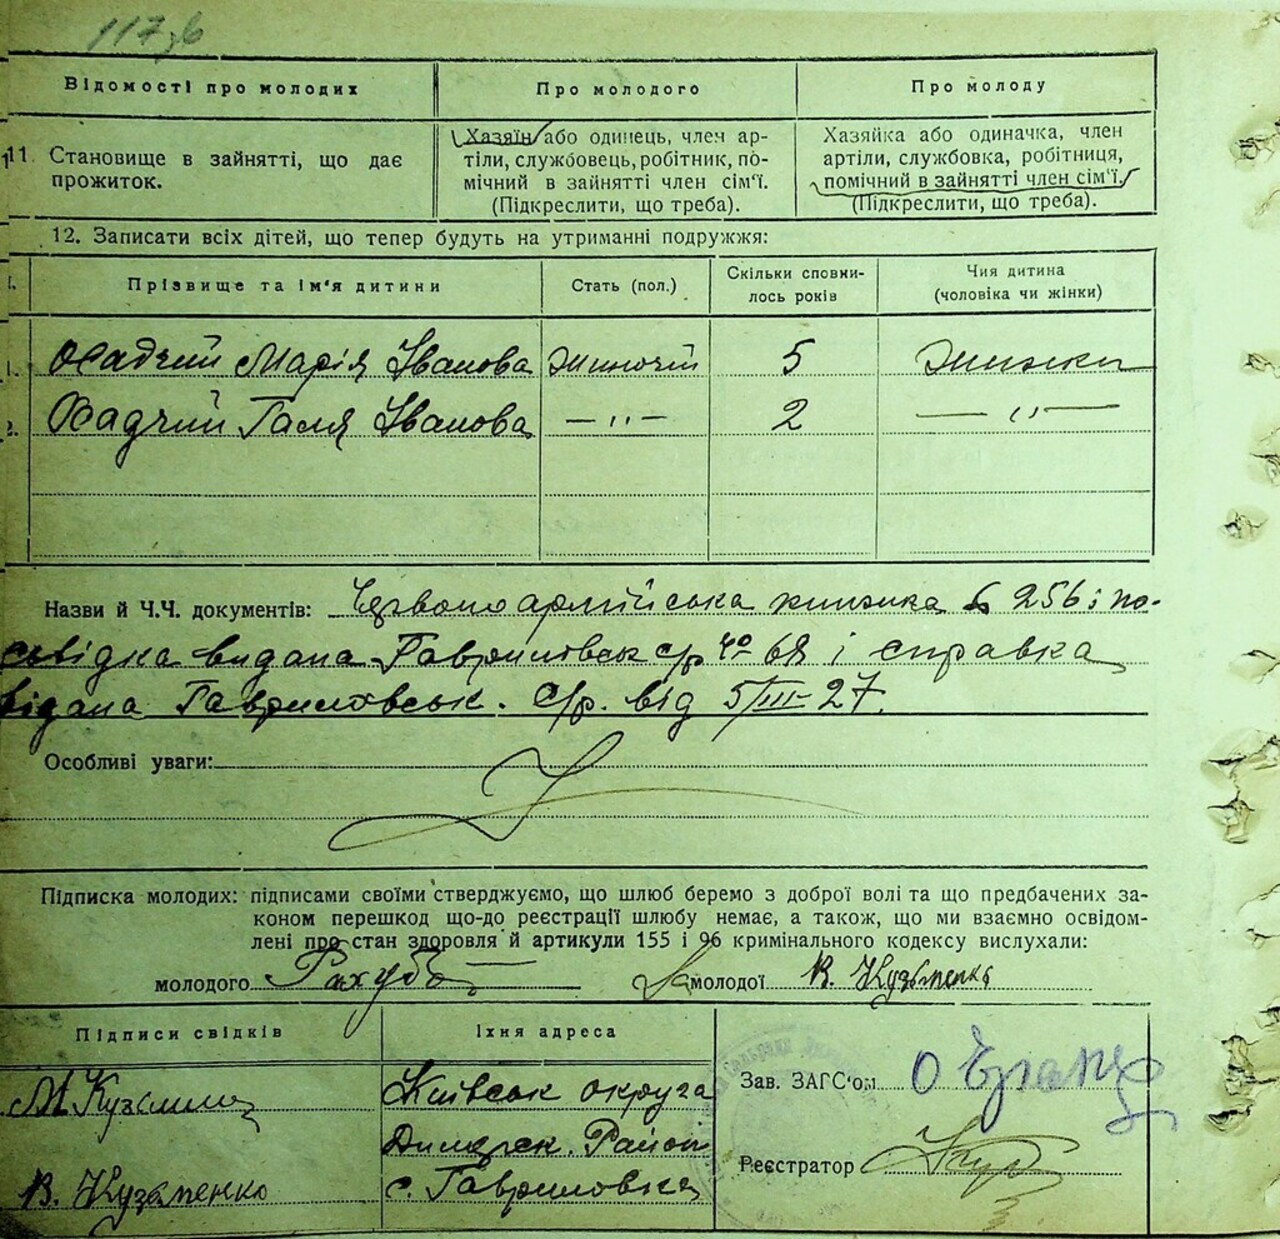 117 зв
Відомості про молодих
Про молодого
Про молоду
11. Становище в зайнятті, що дає
прожиток.
Хазяїн або одинець, член ар-
тіли, службовець, робітник, по-
мічний в зайнятті член сім'ї.
(Підкреслити, що треба).
Хазяйка або одиначка, член
артіли, службовка, робітниця,
помічний в зайнятті член сім'ї.
(Підкреслити, що треба).
12. Записати всіх дітей, що тепер будуть на утриманні подружжя:
Прізвище та ім'я дитини
Стать (пол.)
Скільки сповни-
лось років
Чия дитина
(чоловіка чи жінки)
1. Осадчий Марія Іванова жиночій 5 жинки
2. Осадчий Галя Іванова — „ — 2 — „ —
Назви й Ч.Ч. документів: Червоно армійська книжка 256 і по-
свідка видана Гавриловськ с/р 68 і справка
видана Гавриловськ. с/р. від 5/III-27.
Особливі уваги:
Підписка молодих: підписами своїми стверджуємо, що шлюб беремо з доброї волі та що предбачених за-
коном перешкод що-до реєстрації шлюбу немає, а також, що ми взаємно освідом-
лені про стан здоровля й артикули 155 і 96 кримінального кодексу вислухали:
молодого Рахуба молодої В. Кузьменко
Підписи свідків
Їхня адреса
М Кузьменко
В. Кузьменко
Київськ округа
Димерск. Район
с. Гавриловка
Зав. ЗАГС'ом
Реєстратор